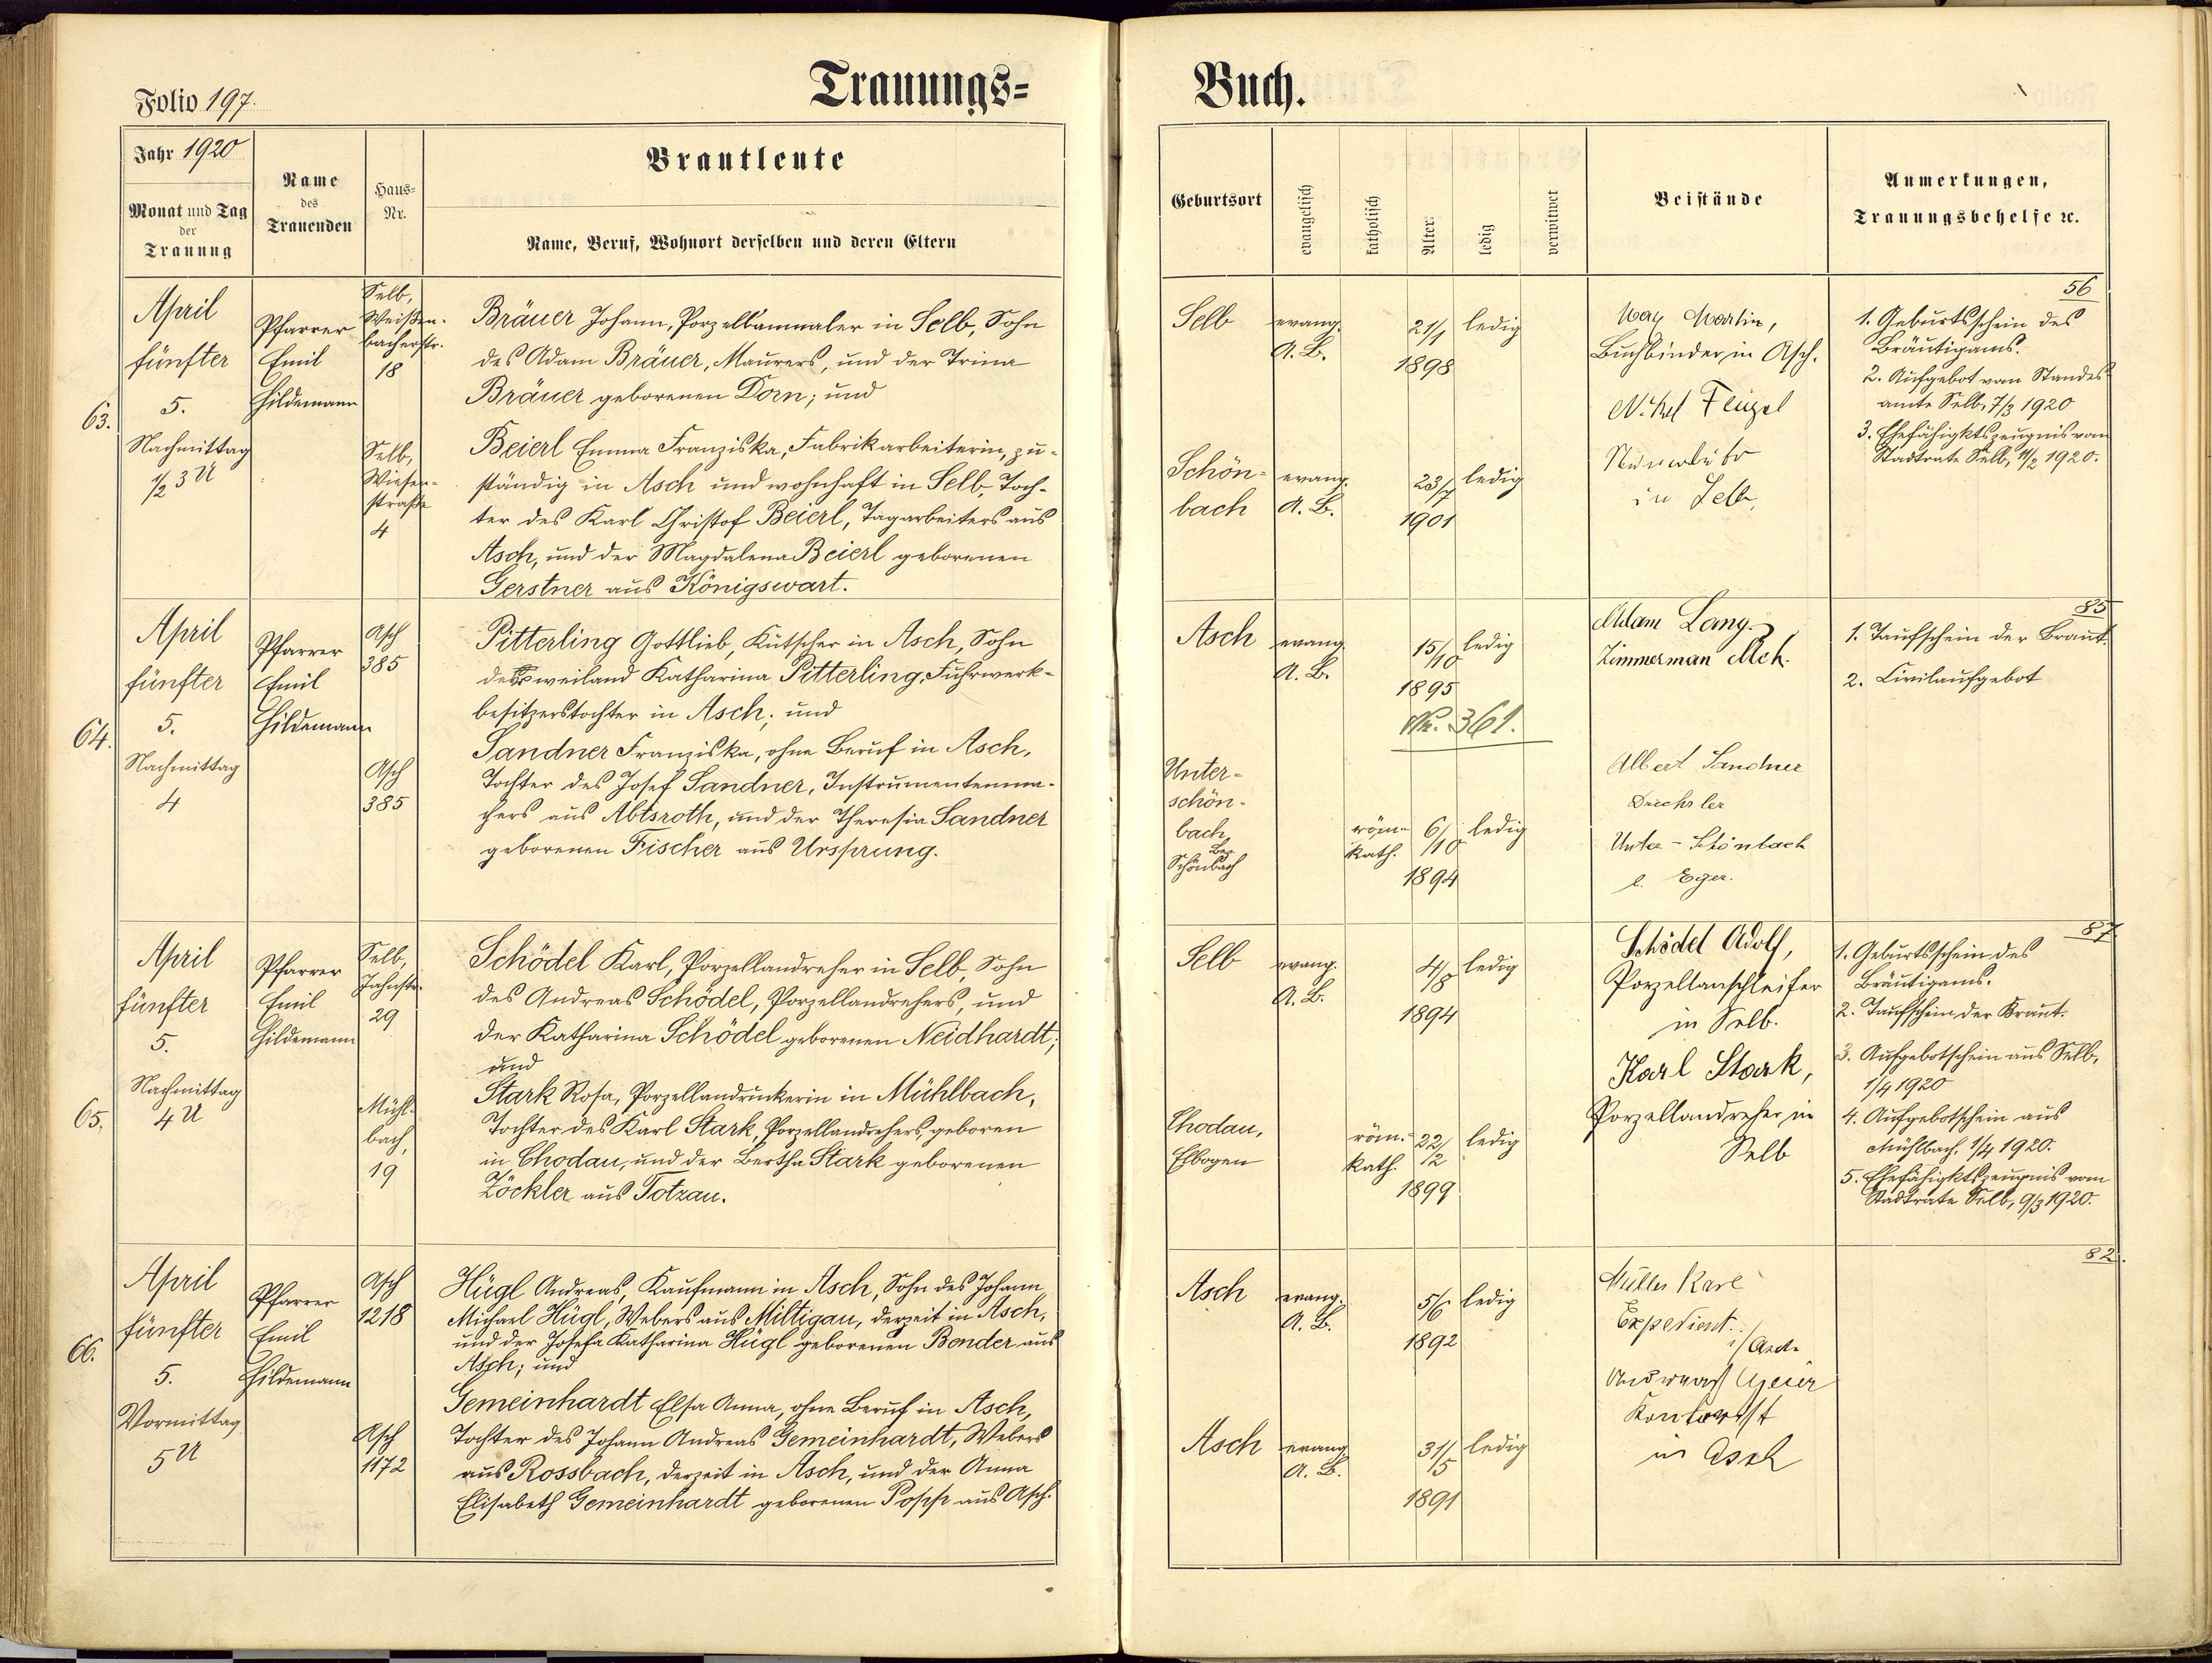 Folio 197.
Trauungs=
Buch.
Jahr 1920
Monat und Tag
der
Trauung
Name
des
Trauenden
Haus=
Nr.
Brautleute
Name, Beruf, Wohnort derselben und deren Eltern
Geburtsort
evangelisch
katholisch
Alter:
ledig
verwitwet
Beistände
Anmerkungen,
Trauungsbehelfe ꝛc.
63.
April
fünfter
5.
Nachmittag
1/2 3 U
Pfarrer
Emil
Hildemann
Selb,
Weißen-
bacherstr.
18
Selb,
Wiesen-
straße
4
Bräuer Johann, Porzellanmaler in Selb, Sohn
des Adam Bräuer, Maurers, und der Trina
Bräuer geborenen Dorn; und
Beierl Emma Franziska, Fabrikarbeiterin, zu-
ständig in Asch und wohnhaft in Selb, Toch-
ter des Karl Christof Beierl, Tagarbeiters aus
Asch, und der Magdalena Beierl geborenen
Gerstner aus Königswart.
Selb
evang.
A. B.
21/1
1898
ledig
Schön-
bach
evang.
A. B.
23/7
1901
ledig
May Martin,
Buchbinder in Asch.
in Selb
56
1. Geburtsschein des
Bräutigams.
2. Aufgebot vom Standes-
amte Selb, 7/3 1920
3. Ehefähigktszeugnis vom
Stadtrate Selb, 11/2 1920.
64.
April
fünfter
5.
Nachmittag
4
Pfarrer
Emil
Hildemann
Asch
385
Asch
385
Pitterling Gottlieb, Kutscher in Asch, Sohn
der weiland Katharina Pitterling, Fuhrwerk-
besitzerstochter in Asch; und
Sandner Franziska, ohne Beruf in Asch,
Tochter des Josef Sandner, Instrumentenma-
chers aus Abtsroth, und der Theresia Sandner
geborenen Fischer aus Ursprung.
Asch
evang.
A. B.
15/10
1895
ledig
Nr. 361.
Unter-
schön-
bach,
Bez.
Schönbach
röm.-
kath.
6/10
1894
ledig
Adam Lang
Zimmerman Asch.
Albert Sandner
Drechsler
Unter-Schönbach
b. Eger.
85
1. Taufschein der Braut.
2. Civilaufgebot
65.
April
fünfter
5.
Nachmittag
4 U
Pfarrer
Emil
Hildemann
Selb,
Jahnstr.
29
Mühl-
bach,
19
Schödel Karl, Porzellandreher in Selb, Sohn
des Andreas Schödel, Porzellandrehers, und
der Katharina Schödel geborenen Neidhardt;
und
Stark Rosa, Porzellandruckerin in Mühlbach,
Tochter des Karl Stark, Porzellandrehers, geboren
in Chodau, und der Bertha Stark geborenen
Zöckler aus Totzau.
Selb
evang.
A. B.
4/8
1894
ledig
Chodau,
Elbogen
röm.-
kath.
22/2
1899
ledig
Schödel Adolf,
Porzellanschleifer
in Selb.
Karl Stark,
Porzellandreher in
Selb
87.
1. Geburtsschein des
Bräutigams.
2. Taufschein der Braut.
3. Aufgebotschein aus Selb,
1/4 1920
4. Aufgebotschein aus
Mühlbach, 1/4 1920.
5. Ehefähigktszeugnis vom
Stadtrate Selb, 9/3 1920.
66.
April
fünfter
5.
Vormittag
5 U
Pfarrer
Emil
Hildemann
Asch
1218
Asch
1172
Hügl Andreas, Kaufmann in Asch, Sohn des Johann
Michael Hügl, Webers aus Miltigau, derzeit in Asch,
und der Josefa Katharina Hügl geborenen Bender aus
Asch; und
Gemeinhardt Elsa Anna, ohne Beruf in Asch,
Tochter des Johann Andreas Gemeinhardt, Webers
aus Rossbach, derzeit in Asch, und der Anna
Elisabeth Gemeinhardt geborenen Popp aus Asch.
Asch
evang.
A. B.
5/6
1892
ledig
Asch
evang.
A. B.
31/5
1891
ledig
Müller Karl
Expedient
i/Asch
Kontorist
in Asch
82.